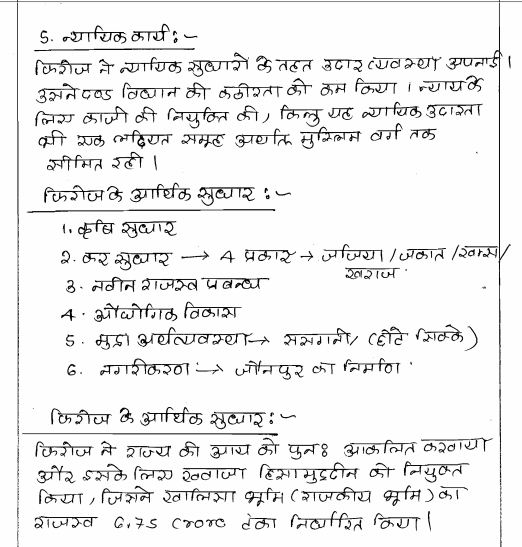 5. न्यायिक कार्य :-
फिरोज ने न्यायिक सुधारों के तहत उदार व्यवस्था अपनाई।
उसने दण्ड विधान की कठोरता को कम किया। न्याय के
लिए काजी की नियुक्ति की, किन्तु यह न्यायिक उदारता
भी एक लक्षित समूह अर्थात् मुस्लिम वर्ग तक
सीमित रही।
फिरोज के आर्थिक सुधार :-
1. कृषि सुधार
2. कर सुधार → 4 प्रकार → जजिया / जकात / खम्स /
खराज
3. नवीन राजस्व प्रबन्ध
4. औद्योगिक विकास
5. मुद्रा अर्थव्यवस्था → ससगनी / (छोटे सिक्के)
6. नगरीकरण → जौनपुर का निर्माण
फिरोज के आर्थिक सुधार :-
फिरोज ने राज्य की आय को पुनः आकलित करवाया
और इसके लिए ख्वाजा हिसामुद्दीन को नियुक्त
किया, जिसने खालिसा भूमि (राजकीय भूमि) का
राजस्व 6.75 crore टंका निर्धारित किया।